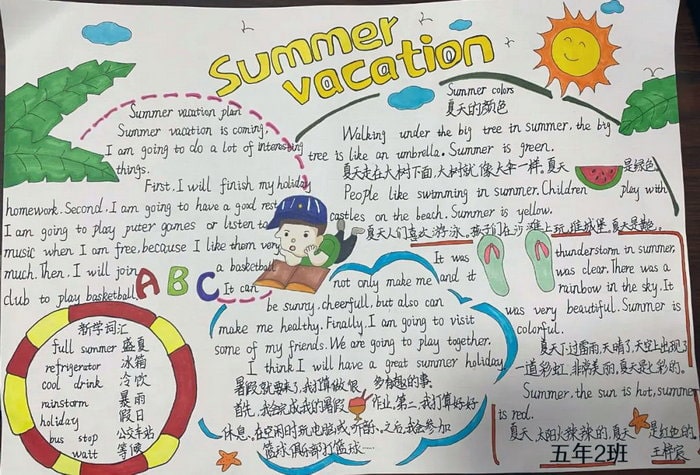 Summer
vacation
Summer vacation plan
Summer vacation is coming.
I am going to do a lot of interesting
things.
First. I will finish my holiday
homework. Second, I am going to have a good rest
I am going to play puter games or listen to
music when I am free, because I like them very
much. Then, I will join a basketball
club to play basketball. It can
ABC
not only make me
be sunny, cheerfull, but also can
make me healthy. Finally, I am going to visit
some of my friends. We are going to play together.
I think I will have a great summer holiday
暑假就要来了,我打算做很多有趣的事
首先,我会完成我的暑假作业,第二,我打算好好
休息,在空闲时玩电脑或听音乐,之后我会参加
篮球俱乐部打篮球……
新学词汇
full summer 盛夏
refrigerator 冰箱
cool drink 冷饮
rainstorm 暴雨
holiday 假日
bus stop 公交车站
watt 等候
Summer colors
夏天的颜色
Walking under the big tree in summer, the big
tree is like an umbrella. Summer is green.
夏天走在大树下面,大树就像大伞一样。夏天是绿色
People like swimming in summer. Children play with
castles on the beach. Summer is yellow.
夏天人们喜欢游泳,孩子们在沙滩上玩,堆城堡,夏天是
It was thunderstorm in summer.
and it was clear. There was a
rainbow in the sky. It
was very beautiful. Summer is
colorful.
夏天下过雷雨,天晴了,天空上出现了
一道彩虹,非常美丽,夏天是七彩的。
Summer, the sun is hot, summer
is red.
夏天,太阳火辣辣的,夏天是红色的
五年2班